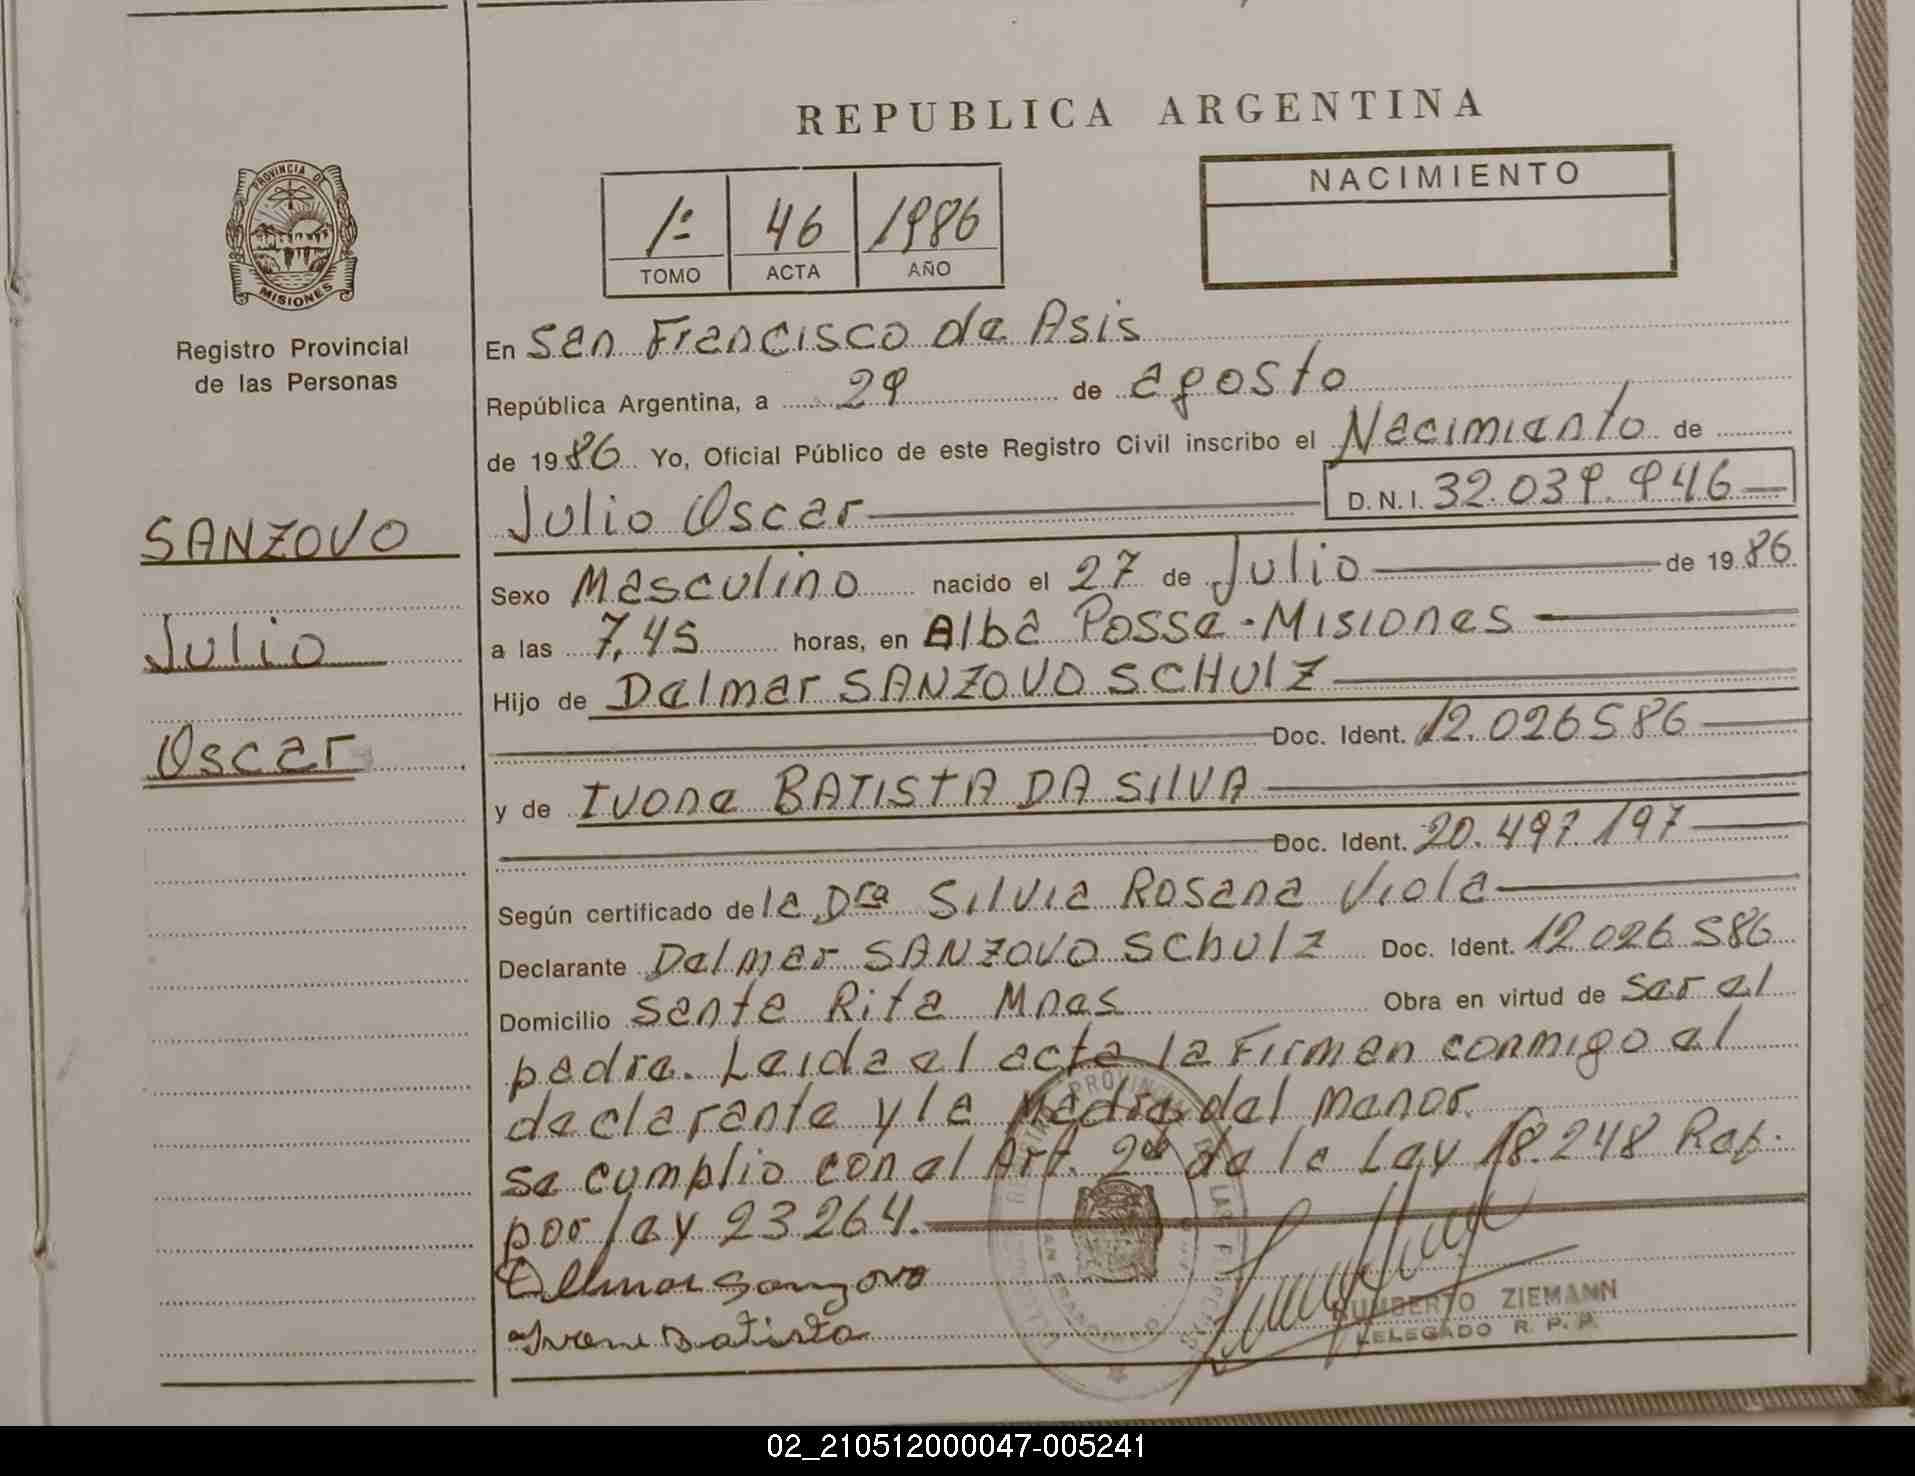 REPUBLICA ARGENTINA
PROVINCIA DE
MISIONES
Registro Provincial
de las Personas
1º 46 1986
TOMO ACTA AÑO
NACIMIENTO
SANZOVO
Julio
Oscar
En San Francisco de Asis
República Argentina, a 29 de agosto
de 1986 Yo, Oficial Público de este Registro Civil inscribo el Nacimiento de
Julio Oscar D.N.I. 32.039.946
Sexo Masculino nacido el 27 de Julio de 1986
a las 7,45 horas, en Alba Posse - Misiones
Hijo de Dalmar SANZOVO SCHULZ
Doc. Ident. 12.026586
y de Ivone BATISTA DA SILVA
Doc. Ident. 20.497.197
Según certificado de la Dra Silvia Rosana Viola
Declarante Dalmar SANZOVO SChulz Doc. Ident. 12.026.586
Domicilio Santa Rita Mnes Obra en virtud de ser el
padre. Leida el acta la Firman conmigo el
declarante y la Madre del menor.
se cumplio con el Art. 2º de la Ley 18.248 Rep.
por ley 23264.
Dellmar Sanzovo
Ivone Batista
HUMBERTO ZIEMANN
DELEGADO R. P. P.
02_210512000047-005241